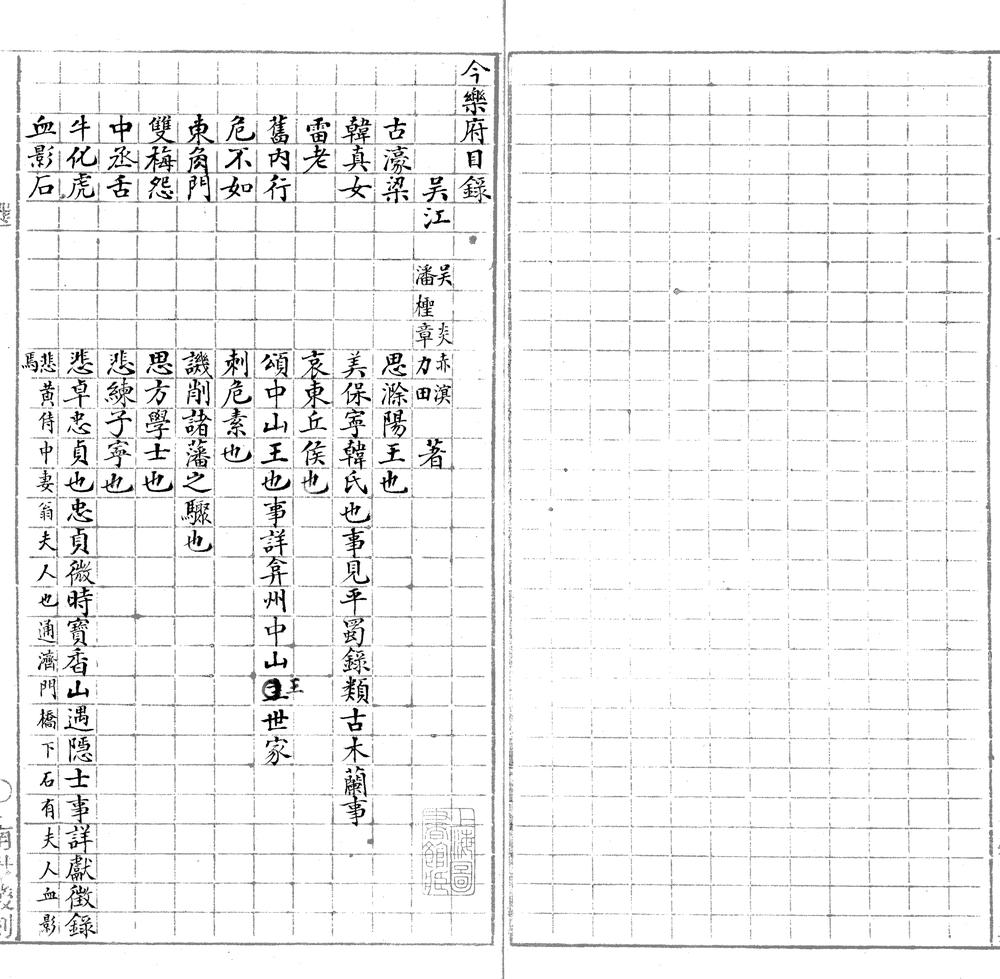 今樂府目錄
吳江 吳炎赤溟 潘檉章力田 著
古濠梁 思滁陽王也
韓真女 美保寧韓氏也事見平蜀錄類古木蘭事
雷老 哀東丘侯也
舊內行 頌中山王也事詳弇州中山王世家
危不如 刺危素也
東角門 譏削諸藩之驟也
雙梅怨 思方學士也
中丞舌 悲練子寧也
牛化虎 悲卓忠貞也忠貞微時寶香山遇隱士事詳獻徵錄
血影石 悲黃侍中妻翁夫人也通濟門橋下石有夫人血影焉
上海圖書館藏